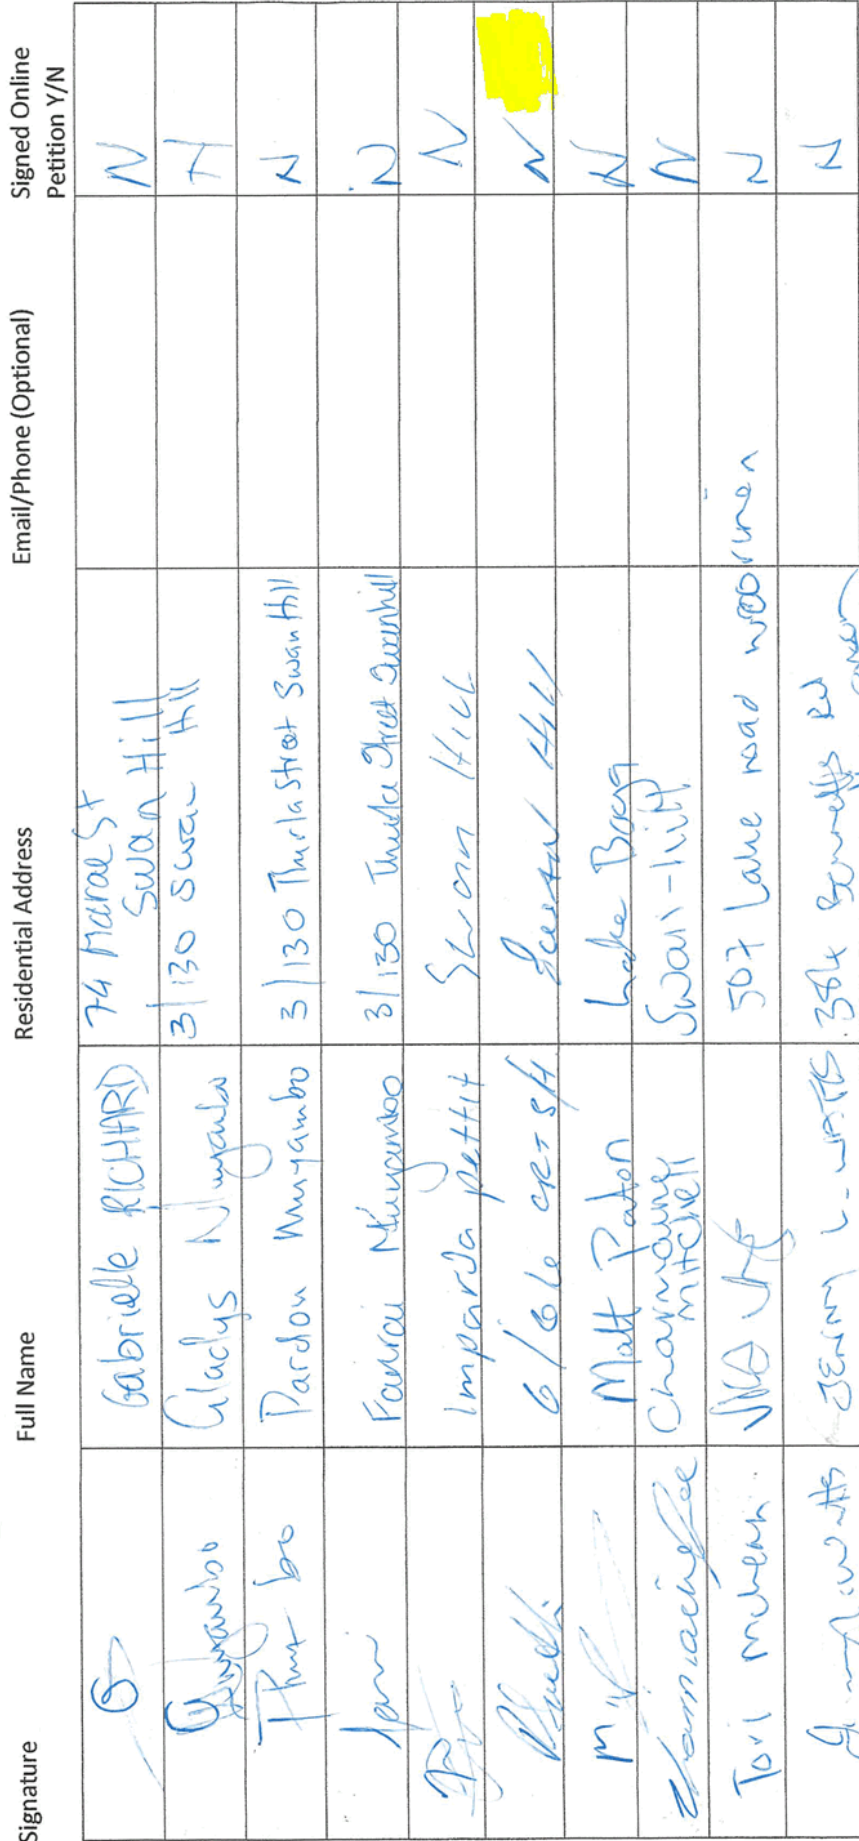 Signature Full Name Residential Address Email/Phone (Optional) Signed Online Petition Y/N
Gabrielle RICHARD 74 Marae St Swan Hill N
Gladys 3/130 Swan Hill N
Thur bo Pardon Muyambo 3/130 Thurla Street Swan Hill N
Farirai Muyamboo 3/130 Thurla Street Swanhill N
Imparda pettit Swan Hill N
6/6 le CRT S/H Swan Hill N
M Matt Paton Lake Boga N
Charmaine Mitchell Swan-hill N
Tori 507 Lake road woorinen N
JENNY L. WATTS 384 Bennetts Rd N